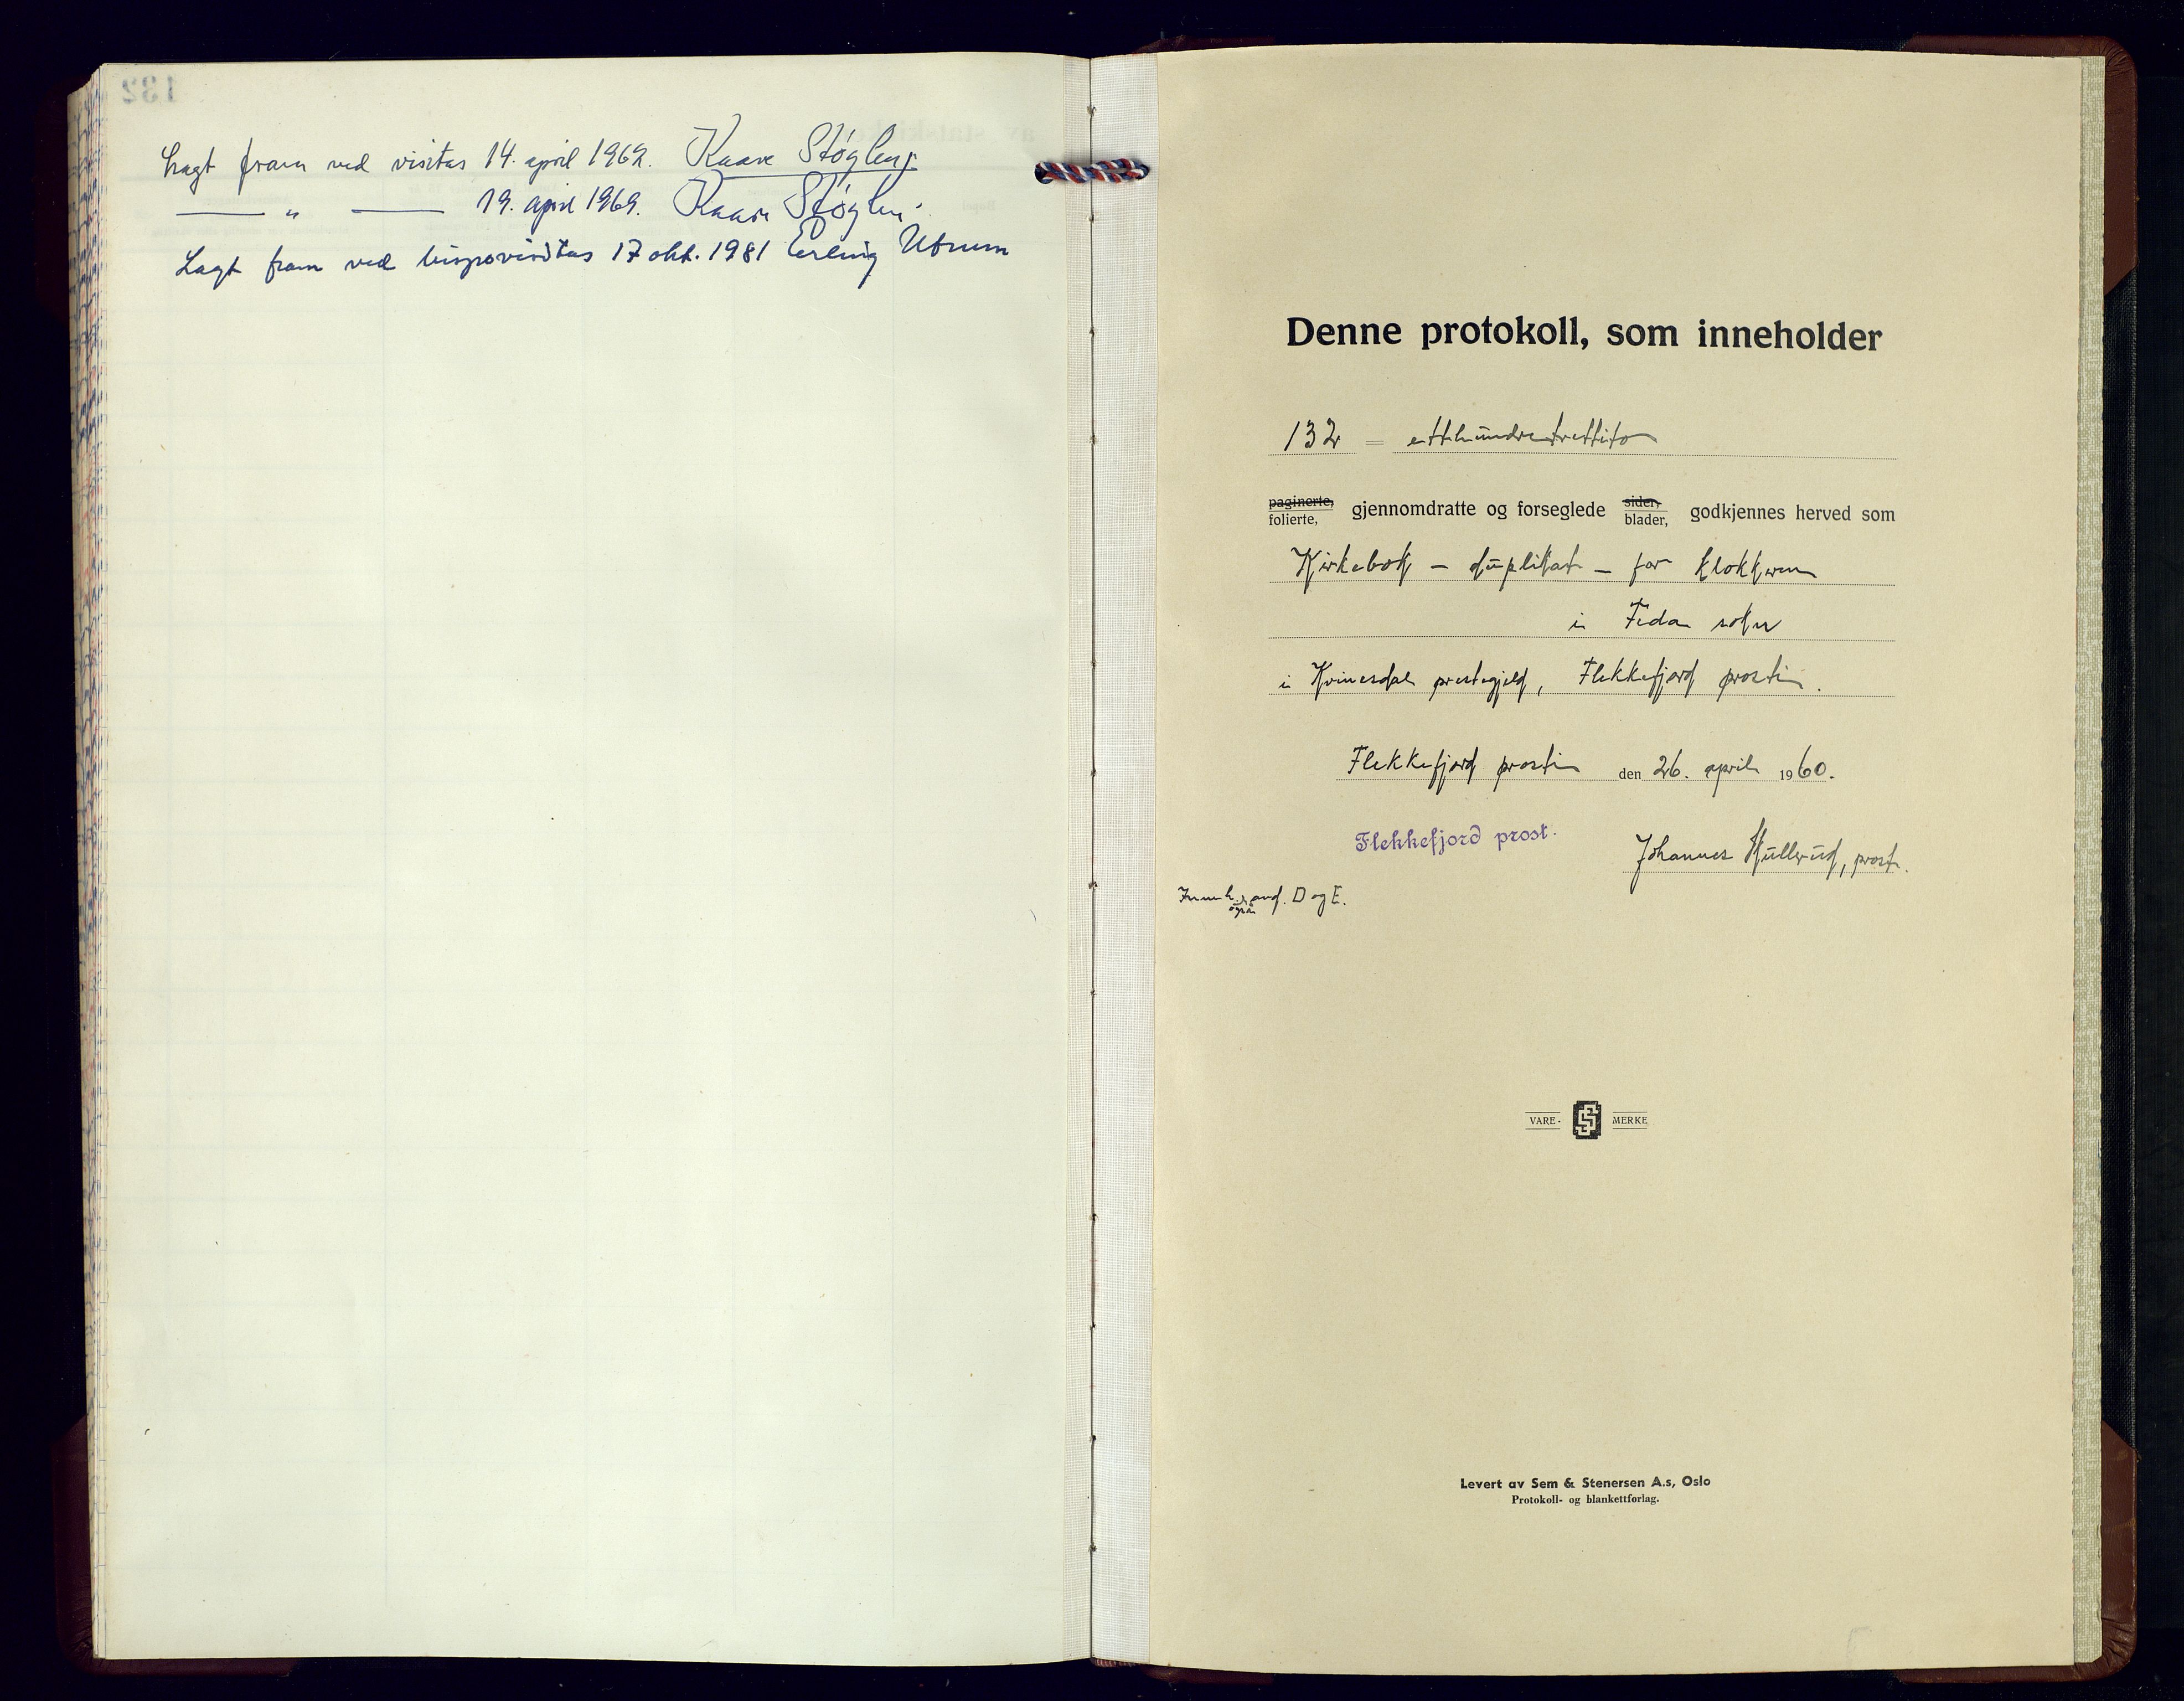 132
Lagt fram ved visitas 14. april 1962. Kaare Støylen
— " — 19. april 1969. Kaare Støylen.
Lagt fram ved bispevisitas 17 okt. 1981 Erling Utnem
Denne protokoll, som inneholder
132 = etthundretrettito
paginerte, folierte, gjennomdratte og forseglede sider, blader, godkjennes herved som
Kirkebok - duplikat - for klokkeren
i Feda sokn
i Kvinesdal prestegjeld, Flekkefjord prosti.
Flekkefjord prosti den 26. april 1960.
Flekkefjord prost.
Johannes Kullerud, prost.
Inneh. også avd. D og E.
VARE- MERKE
Levert av Sem & Stenersen A.s, Oslo
Protokoll- og blankettforlag.